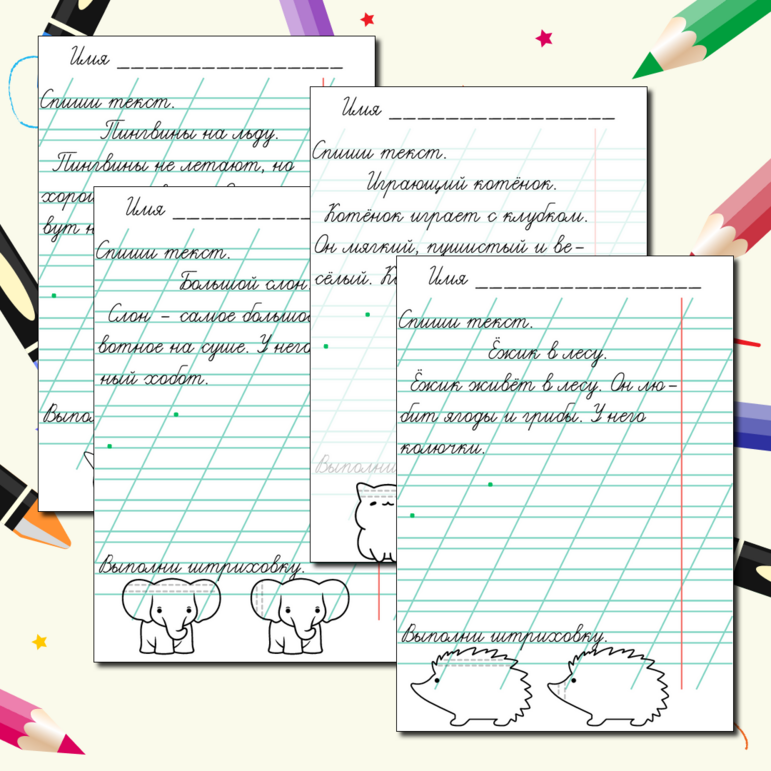 Имя
Спиши текст.
Пингвины на льду.
Пингвины не летают, но
Имя
Спиши текст.
Большой слон
Слон – самое
вотное на суше. У него
ный хобот.
Выполни штриховку.
Имя
Спиши текст.
Играющий котёнок.
Котёнок играет с клубком.
Он мягкий, пушистый и ве-
сёлый.
Выполни
Имя
Спиши текст.
Ёжик в лесу.
Ёжик живёт в лесу. Он лю-
бит ягоды и грибы. У него
колючки.
Выполни штриховку.